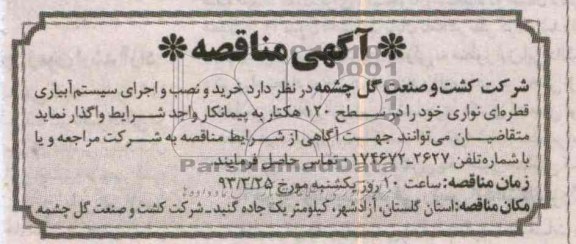 ❊ آگهی مناقصه ❊
شرکت کشت و صنعت گل چشمه در نظر دارد خرید و نصب و اجرای سیستم آبیاری
قطره‌ای نواری خود را در سطح ۱۲۰ هکتار به پیمانکار واجد شرایط واگذار نماید
متقاضیان می‌توانند جهت آگاهی از شرایط مناقصه به شرکت مراجعه و یا
با شماره تلفن ۲۶۲۷-۰۱۷۴۶۷۲ تماس حاصل فرمایند
زمان مناقصه: ساعت ۱۰ روز یکشنبه مورخ ۹۳/۲/۲۵
مکان مناقصه: استان گلستان، آزادشهر، کیلومتر یک جاده گنبد ـ شرکت کشت و صنعت گل چشمه
ParsNamadData